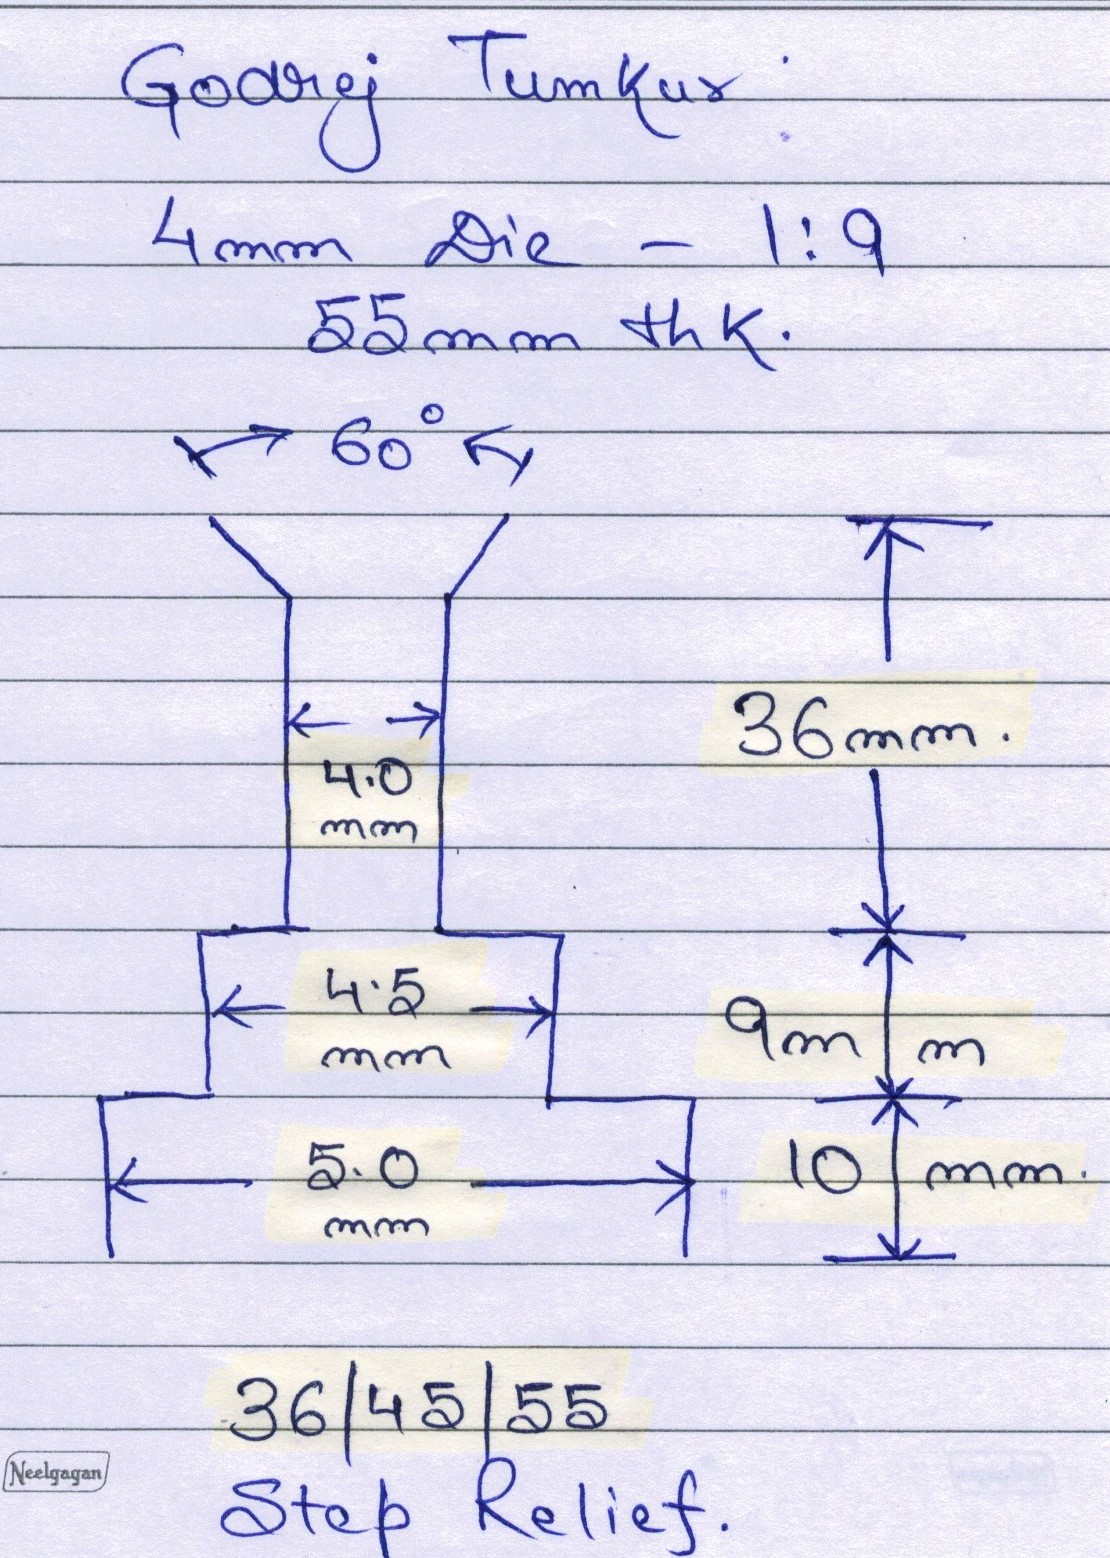 Godrej Tumkur
4mm Die - 1:9
55mm thk.
60°
36mm.
4.0
mm
4.5
mm
9mm
5.0
mm
10 mm.
36|45|55
Step Relief.
Neelgagan